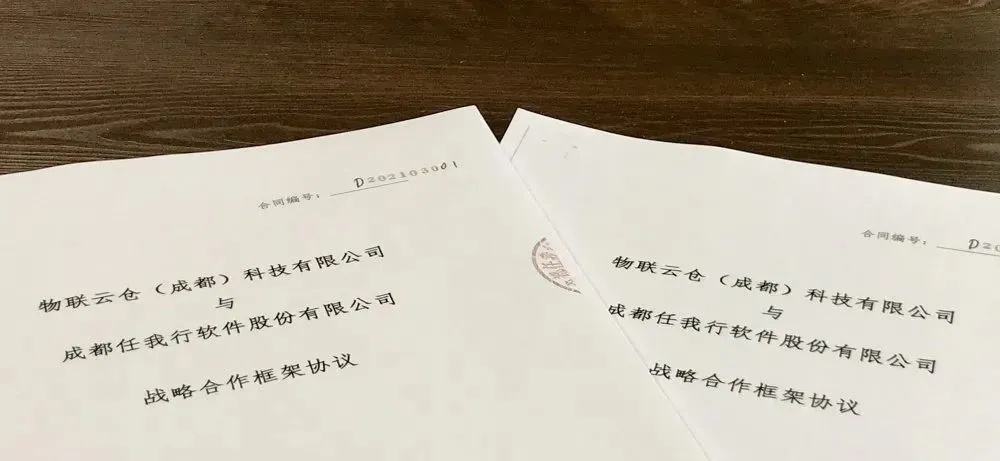 合同编号: D202103001
物联云仓（成都）科技有限公司
与
成都任我行软件股份有限公司
战略合作框架协议
合同编号: D20
物联云仓（成都）科技有限公司
与
成都任我行软件股份有限公司
战略合作框架协议